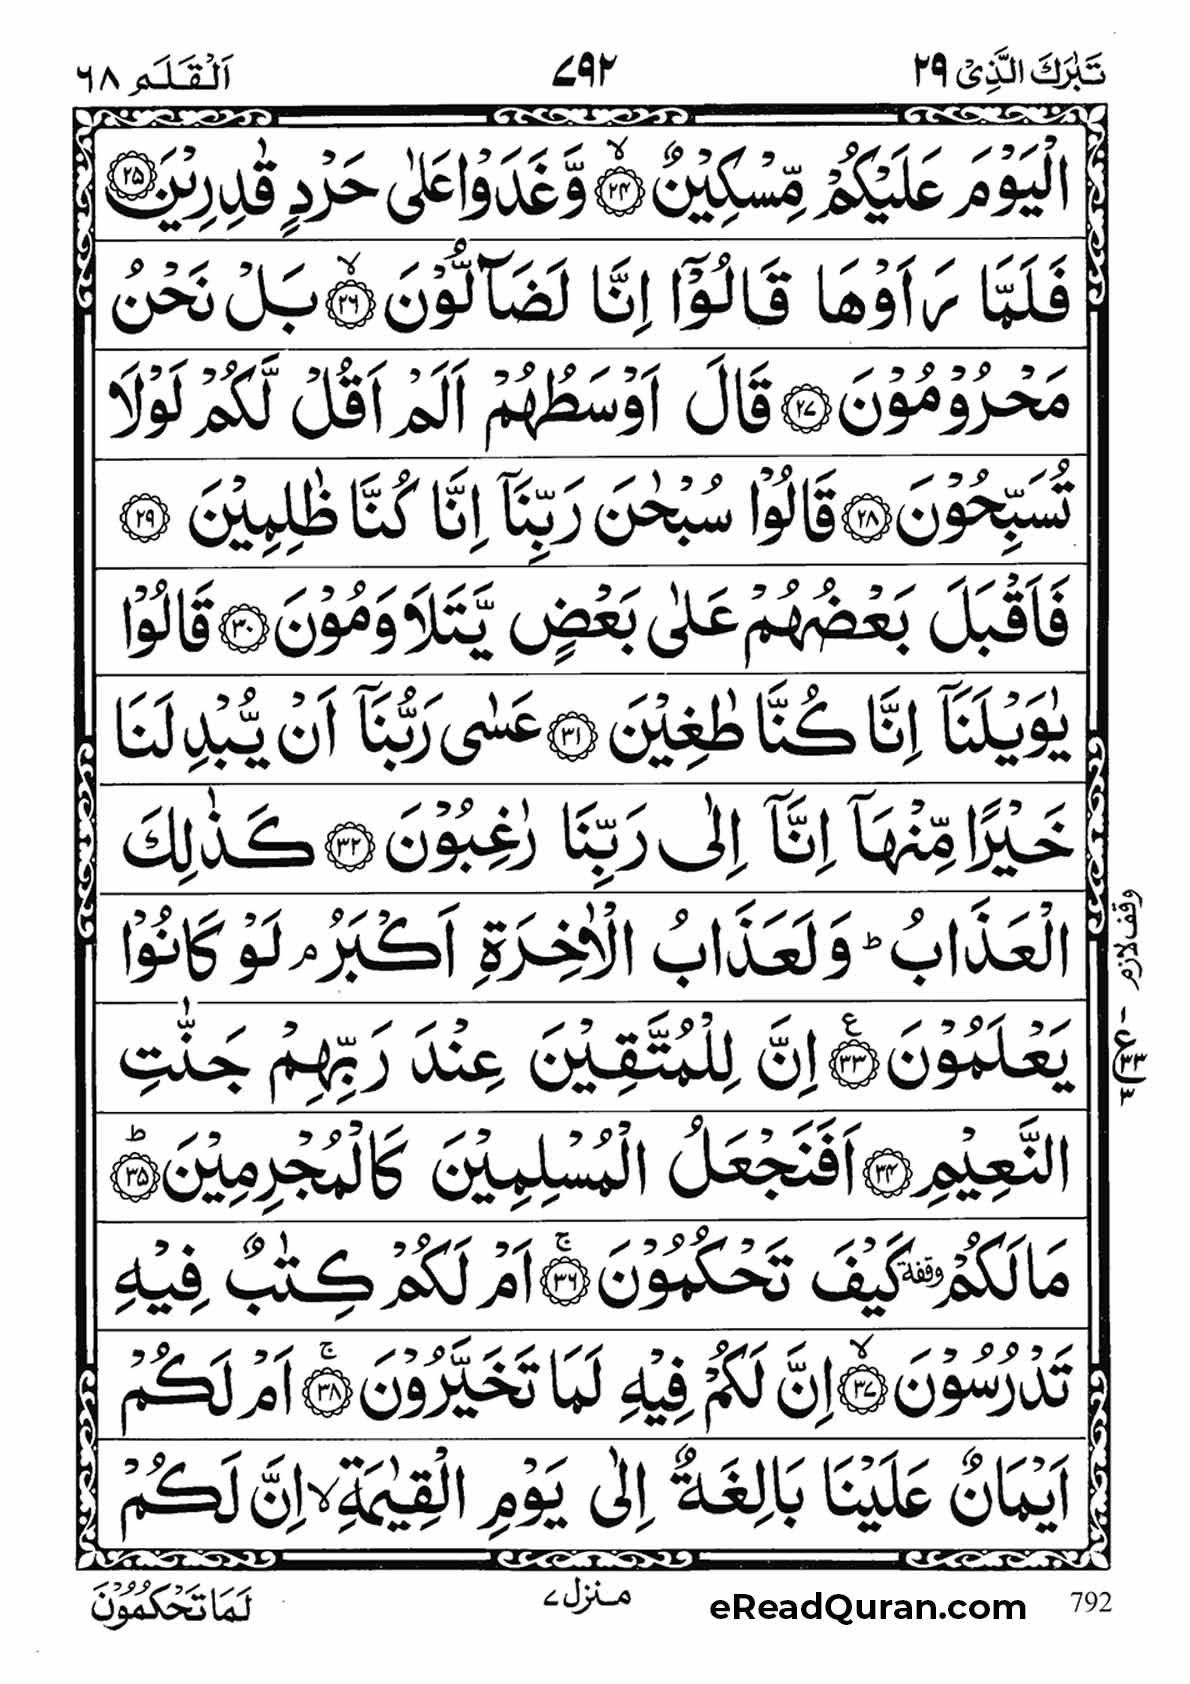 تَبٰرَكَ الَّذِیْ ۲۹
۷۹۲
اَلْقَلَم ۶۸
الْیَوْمَ عَلَیْكُمْ مِّسْكِیْنٌ ۙ﴿۲۴﴾ وَّ غَدَوْا عَلٰی حَرْدٍ قٰدِرِیْنَ ﴿۲۵﴾
فَلَمَّا رَاَوْهَا قَالُوْۤا اِنَّا لَضَآلُّوْنَ ۙ﴿۲۶﴾ بَلْ نَحْنُ
مَحْرُوْمُوْنَ ﴿۲۷﴾ قَالَ اَوْسَطُهُمْ اَلَمْ اَقُلْ لَّكُمْ لَوْلَا
تُسَبِّحُوْنَ ﴿۲۸﴾ قَالُوْا سُبْحٰنَ رَبِّنَاۤ اِنَّا كُنَّا ظٰلِمِیْنَ ﴿۲۹﴾
فَاَقْبَلَ بَعْضُهُمْ عَلٰی بَعْضٍ یَّتَلَاوَمُوْنَ ﴿۳۰﴾ قَالُوْا
یٰوَیْلَنَاۤ اِنَّا كُنَّا طٰغِیْنَ ﴿۳۱﴾ عَسٰی رَبُّنَاۤ اَنْ یُّبْدِلَنَا
خَیْرًا مِّنْهَاۤ اِنَّاۤ اِلٰی رَبِّنَا رٰغِبُوْنَ ﴿۳۲﴾ كَذٰلِكَ
الْعَذَابُ ؕ وَ لَعَذَابُ الْاٰخِرَةِ اَكْبَرُ ۘ لَوْ كَانُوْا
یَعْلَمُوْنَ ﴿۳۳﴾ع اِنَّ لِلْمُتَّقِیْنَ عِنْدَ رَبِّهِمْ جَنّٰتِ
النَّعِیْمِ ﴿۳۴﴾ اَفَنَجْعَلُ الْمُسْلِمِیْنَ كَالْمُجْرِمِیْنَ ؕ﴿۳۵﴾
مَا لَكُمْ وقفة كَیْفَ تَحْكُمُوْنَ ۚ﴿۳۶﴾ اَمْ لَكُمْ كِتٰبٌ فِیْهِ
تَدْرُسُوْنَ ۙ﴿۳۷﴾ اِنَّ لَكُمْ فِیْهِ لَمَا تَخَیَّرُوْنَ ۚ﴿۳۸﴾ اَمْ لَكُمْ
اَیْمَانٌ عَلَیْنَا بَالِغَةٌ اِلٰی یَوْمِ الْقِیٰمَةِ ۙ اِنَّ لَكُمْ
وقف لازم
۱
ع
۳۳
۳
792
eReadQuran.com
منزل ۷
لَمَا تَحْكُمُوْنَ